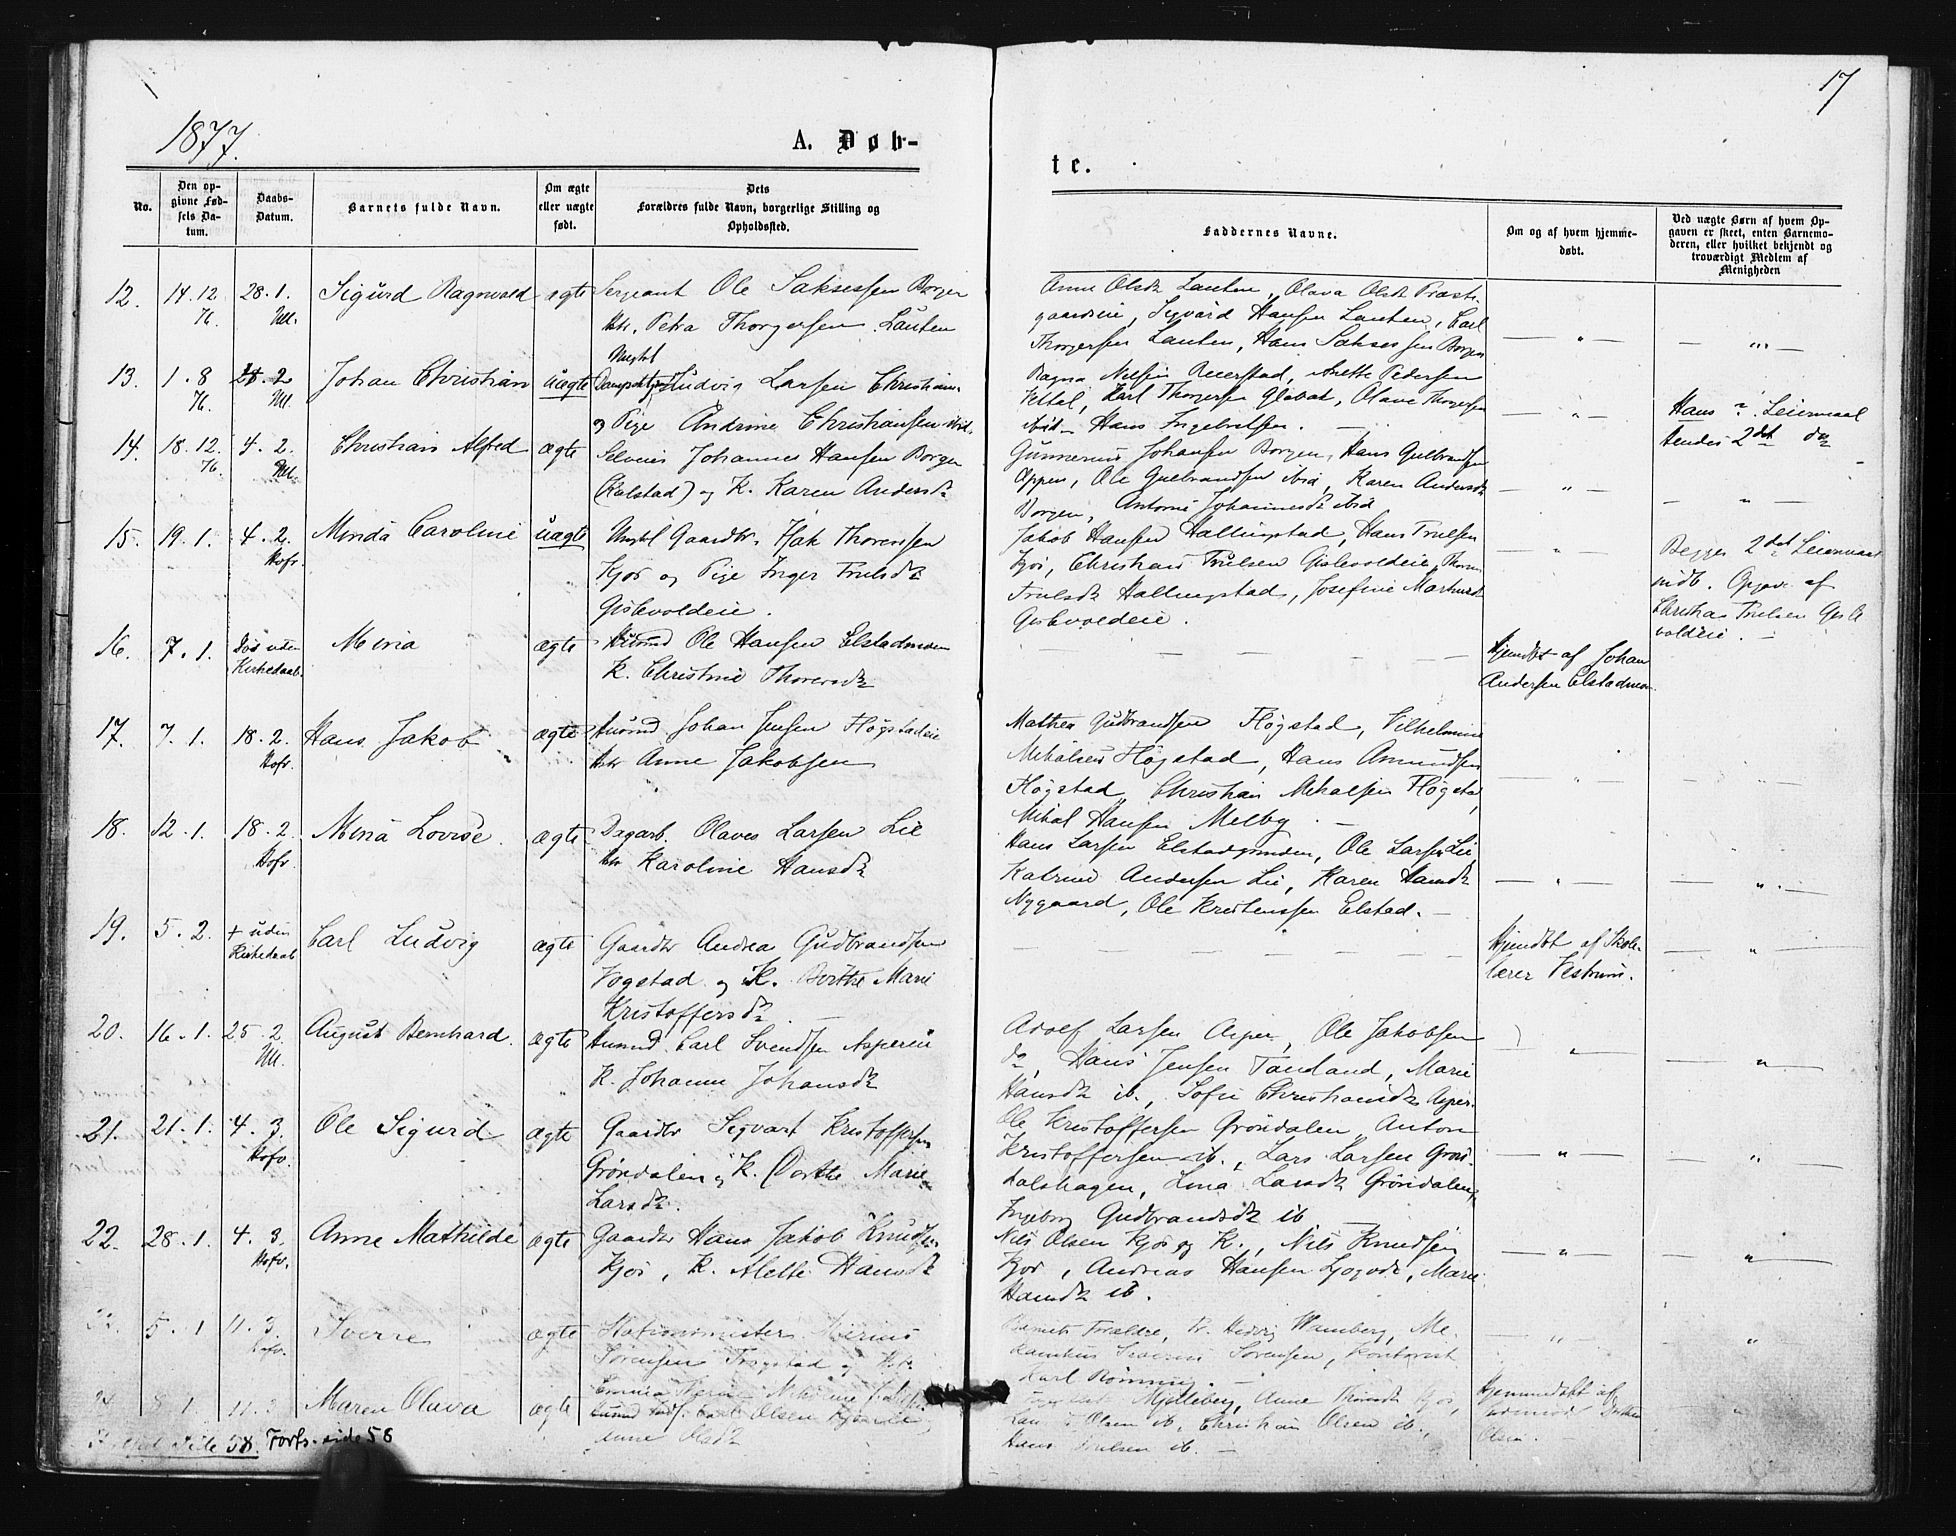 17
1877.
A. Døb-
te.
No.
Den op-
givne Fød-
sels Da-
tum.
Daabs-
Datum.
Barnets fulde Navn.
Om ægte
eller uægte
født.
Dets
Forældres fulde Navn, borgerlige Stilling og
Opholdssted.
Faddernes Navne.
Om og af hvem hjemme-
døbt.
Ved uægte Børn af hvem Op-
gaven er skeet, enten Barnemo-
deren, eller hvilket bekjendt og
troværdigt Medlem af
Menigheden
12. 14.12 28.1. Sigurd Ragnvald ægte Sergeant Ole Saksessen Borgen
76. Ull. Petra Thorgersen Lauten
Anne Olsdt Lauten, Olava Olsdt Præste-
gaardseie, Sigvard Hansen Lauten, Carl
Thorgersen Lauten, Hans Saksessen Borgen
13. 1.8 2 Johan Christian uægte Ludvig Larsen Christian
76. Ull. og Pige Andrine Christiansen ibid.
Ragna Nilsen Reierstad, Anette Pedersen
Karl Thorgersen, Olava Thorgersen
ibid - Hans Ingebretsen.
Hans Leiermaal
2det
14. 18.12. 4.2. Christian Alfred ægte Selveier Johannes Hansen Borgen
76. Ull. (Kalstad) og K. Karen Andersdt
Gunnerius Johansen Borgen, Hans Gulbrandsen
Oppen, Ole Gulbrandsen ibid, Karen Andersdt
Borgen, Antonie Johannesdt ibid
15. 19.1. 4.2. Minda Caroline uægte Ungkl Gaardbr. Isak Thoressen
Hofv. Kjos og Pige Inger Trulsdt
Gislevoldeie.
Jakob Hansen Hallingstad, Hans Trulsen
Kjos, Christian Trulsen Gislevoldeie, Thorine
Trulsdt Hallingstad, Josefine
Gislevoldeie.
Begges 2det Leiermaal
Opgav. af
Christian Trulsen Gisle
voldeie.
16. 7.1. Død uden Mina ægte Husmd Ole Hansen Elstadmoen
Kirkedaab. K. Christine Thorersdt
Hjemdbt af Johan
Andersen Elstadmoen
17. 7.1. 18.2. Hans Jakob ægte Husmd Johan Jensen Høgstadeie
Hofv. Anne Jakobsen
Mathea Gudbrandsen Høgstad, Vilhelmine
Mikalsen Høgstad, Hans Amundsen
Høgstad, Christian Mikalsen Høgstad,
Mikal Hansen Melby.
18. 12.1. 18.2. Mina Lovise. ægte Dagarb. Olaves Larsen Lie
Hofv. Karoline Hansdt
Hans Larsen Elstadgrinden, Ole Larsen Lie
Katrine Andersen Lie, Karen Hansdt
Nygaard, Ole Kristenssen Elstad.
19. 5.2. + uden Carl Ludvig ægte Gaardbr Andrea Gudbrandsen
Kirkedaab Vogstad og K. Berthe Marie
Kristoffersdt
Hjemdbt af Skole-
lærer Vestrum.
20. 16.1. 25.2. August Bernhard. ægte Husmd Carl Svendsen Aspereie
Ull. K. Johanne Johansdt
Adolf Larsen Asper, Ole Jakobsen
do, Hans Jensen Tandland, Marie
Hansdt ib., Sofie Christiansdt Asper.
21. 21.1. 4.3. Ole Sigurd ægte Gaardbr Sigvart Kristoffersen
Hofv. Grøndalen, K. Dorthe Marie
Larsdt.
Ole Kristoffersen Grøndalen, Anton
Kristoffersen ib., Lars Larsen Grøn-
dalshagen, Lina Larsdt Grøndalen,
Ingeborg Gudbrandsdt ib
22. 28.1. 4.3. Anne Mathilde ægte Gaardbr Hans Jakob Knudsen
Hofv. Kjos, K. Alette Hansdt
Nils Olsen Kjos og K., Nils Knudsen
Kjos, Andreas Hansen, Marie
Hansdt ib.
5.1 11.3. Sverre ægte Stationsmester
Hofv. Sørensen og
Barnets Forældre, Fr. Hedvig Wamberg, Me-
Sørensen, Kontorist
Karl Rønning.
Maren Olava ægte Olsen
Anne Olsdt
Mjølleberg, Anne
Olsen ib., Christian Olsen ib.,
Hans Trulsen ib.
Hjemmedøbt af
Olsen.
side 58. Forts. side 58